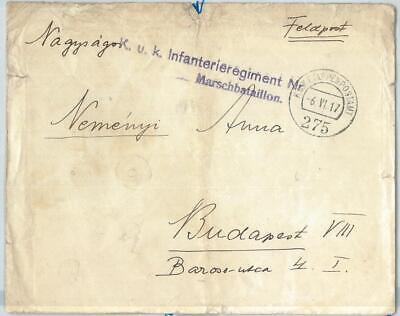 Feldpost
Nagyságos
K. u. k. Infanterieregiment Nr.
Marschbataillon.
K.u.K. ETAPPENPOSTAMT
6 VI. 17
275
Neményi Anna
Budapest VIII
Baross-utca 4. I.